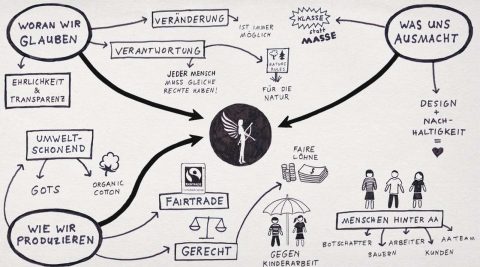 WORAN WIR
GLAUBEN
VERÄNDERUNG
IST IMMER
MÖGLICH
VERANTWORTUNG
JEDER MENSCH
MUSS GLEICHE
RECHTE HABEN!
NATURE
RULES
FÜR DIE
NATUR
EHRLICHKEIT
& TRANSPARENZ
KLASSE
statt
MASSE
WAS UNS
AUSMACHT
DESIGN
+
NACH-
HALTIGKEIT
=
UMWELT-
SCHONEND
GOTS
ORGANIC
COTTON
WIE WIR
PRODUZIEREN
FAIRTRADE
FAIRTRADE
GERECHT
FAIRE
LÖHNE
GEGEN
KINDERARBEIT
MENSCHEN HINTER AA
BOTSCHAFTER
BAUERN
ARBEITER
KUNDEN
AA TEAM